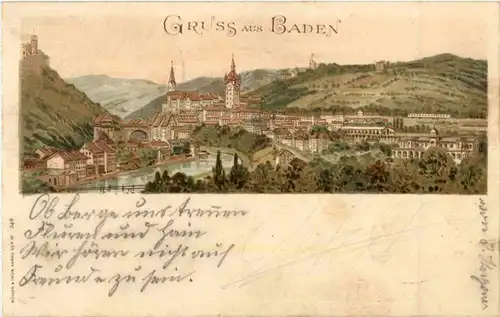 GRUSS AUS BADEN
Ob Berge uns trennen
Fluren und Hain
Wir hören nicht auf
Freunde zu sein.